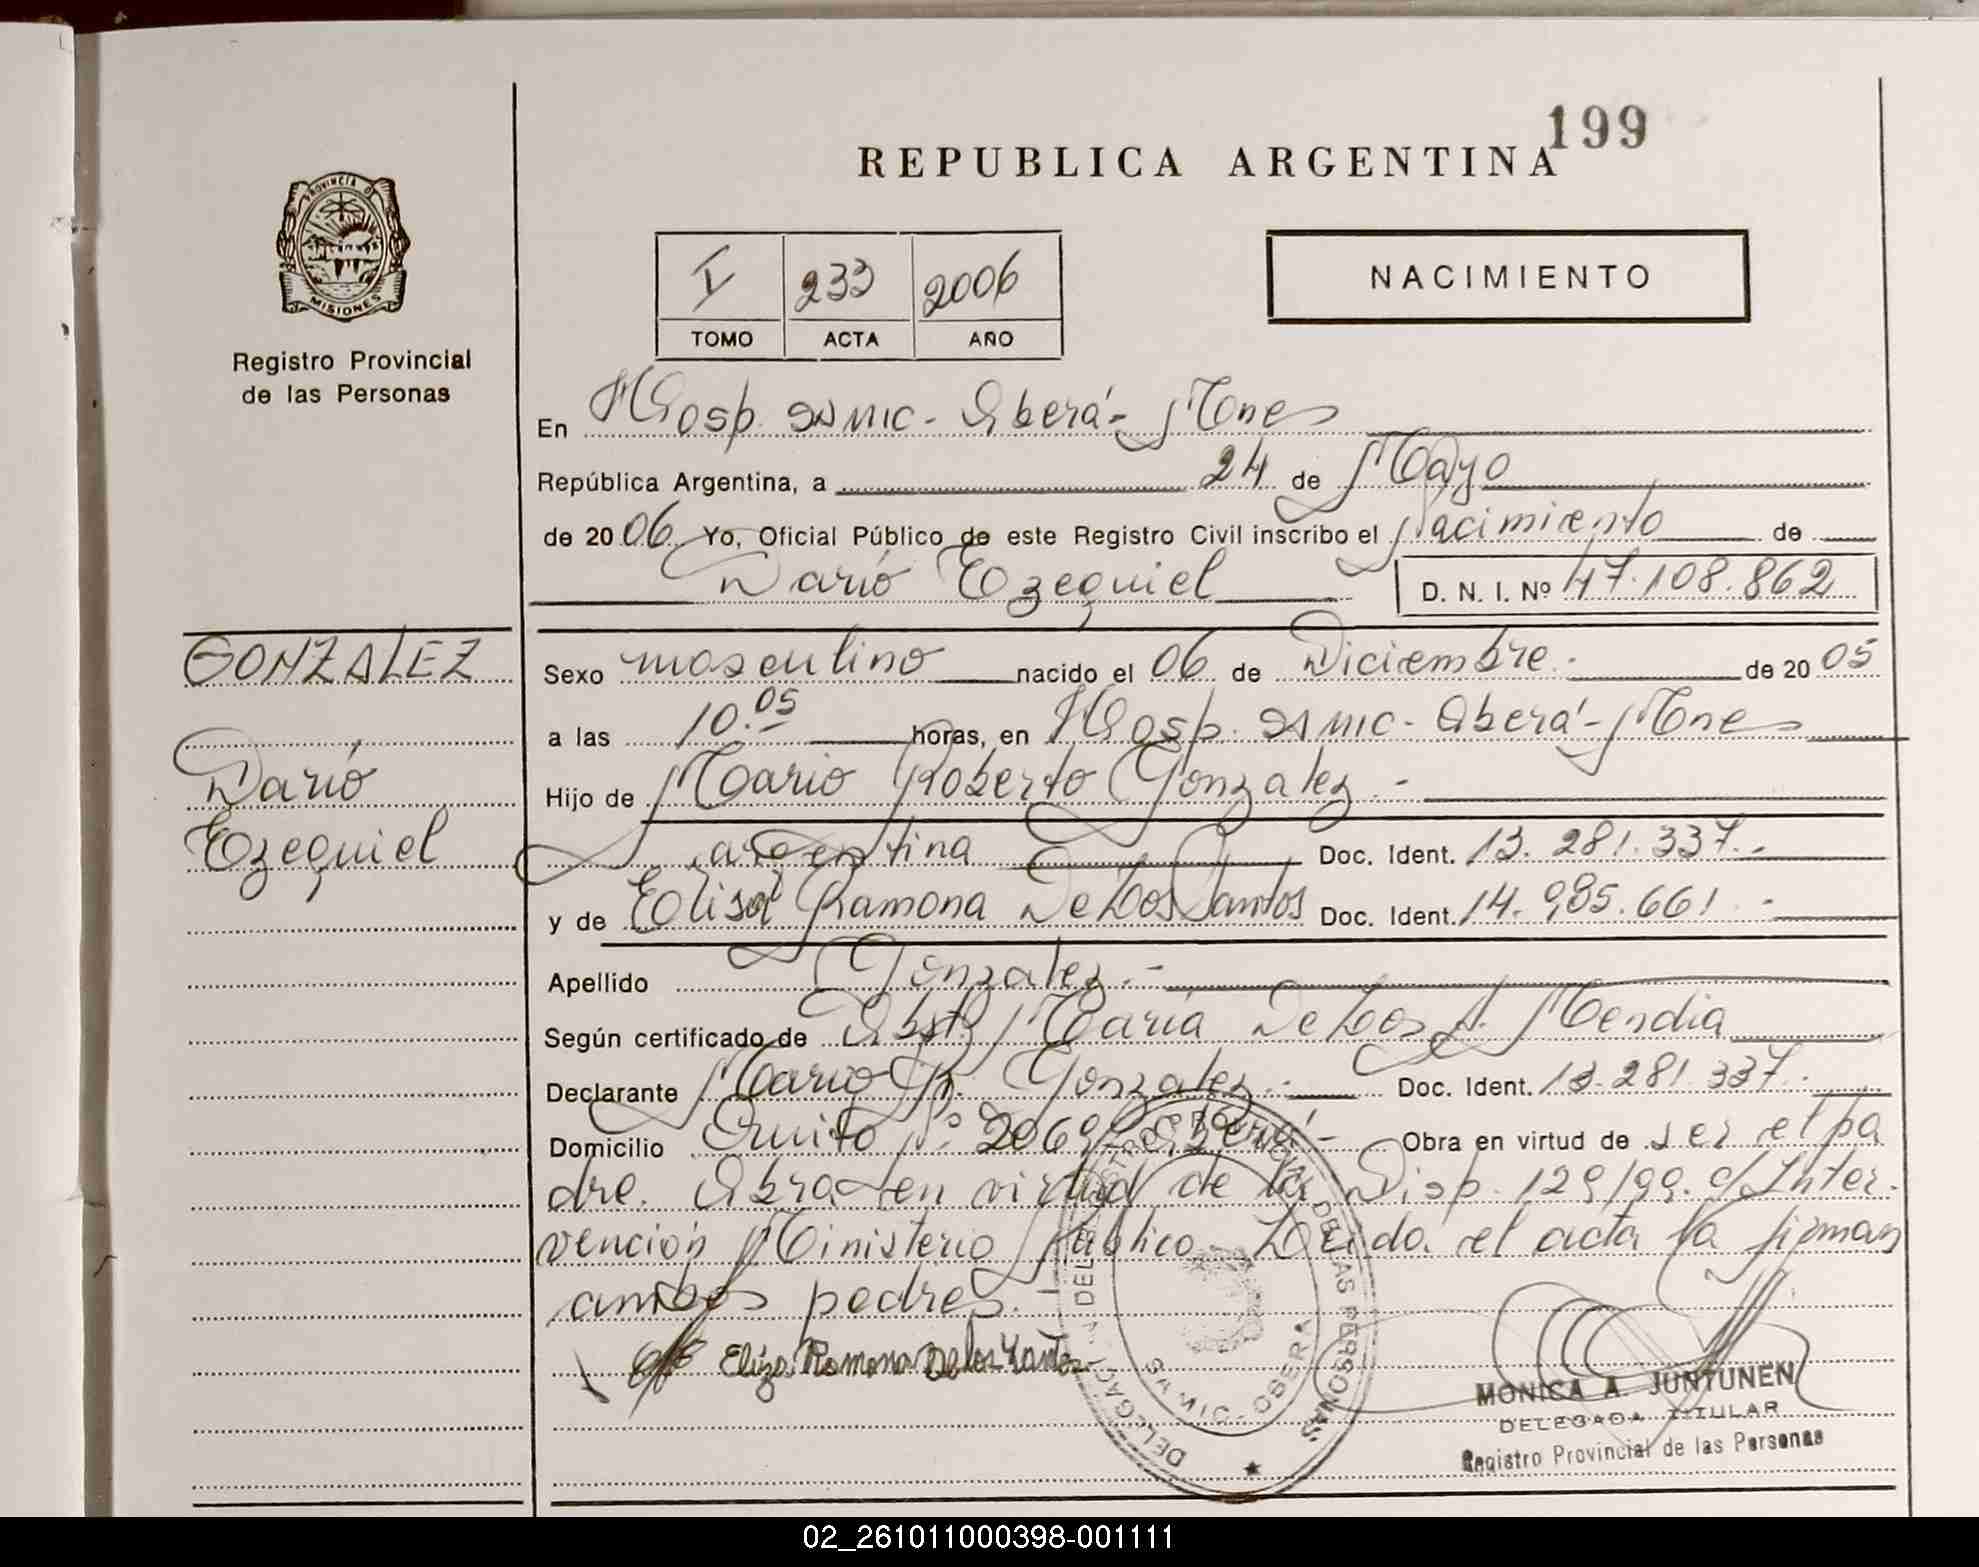 199
REPUBLICA ARGENTINA
PROVINCIA DE
MISIONES
Registro Provincial
de las Personas
I 233 2006
TOMO ACTA AÑO
NACIMIENTO
En Hosp. SAMIC - Oberá - Mnes
República Argentina, a 24 de Mayo
de 2006 Yo, Oficial Público de este Registro Civil inscribo el Nacimiento de
Darío Ezequiel D. N. I. Nº 47.108.862
GONZALEZ
Darío
Ezequiel
Sexo masculino nacido el 06 de Diciembre.- de 2005
a las 10.05 horas, en Hosp. SAMIC - Oberá - Mnes
Hijo de Mario Roberto Gonzalez.-
argentina Doc. Ident. 13.281.337.-
y de Elisa Ramona De Los Santos Doc. Ident. 14.985.661.-
Apellido Gonzalez.-
Según certificado de Obst. María De Los A. Mendia
Declarante Mario R. Gonzalez.- Doc. Ident. 13.281.337.-
Domicilio Nº 2069 - Oberá - Obra en virtud de ser el pa
dre. Obra en virtud de la Disp. 129/99. c/Inter-
vención Ministerio Público. Leída el acta la firman
ambos padres.
Eliza Ramona De los Santos
DELEGACION OBERA
MONICA A. JUNTUNEN
DELEGADA TITULAR
Registro Provincial de las Personas
02_261011000398-001111